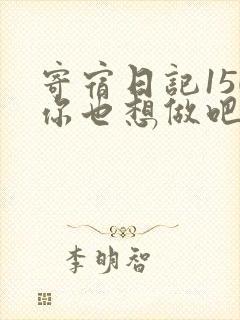 寄宿日記15
你也想做吧
李明智